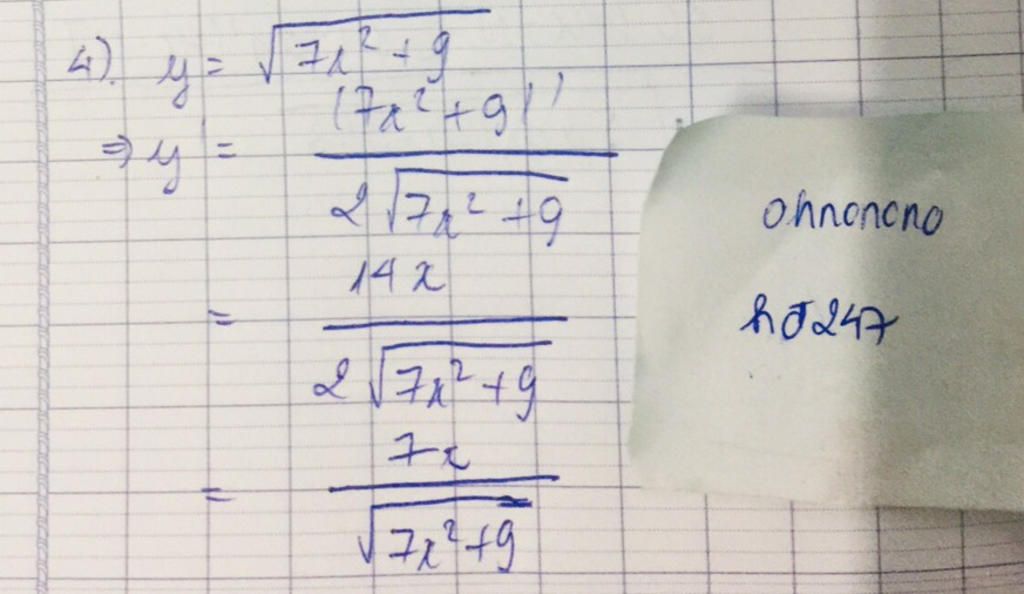 4). y = √(7x² + 9)
⇒ y' = (7x² + 9)' / 2√(7x² + 9)
= 14x / 2√(7x² + 9)
= 7x / √(7x² + 9)
ohnonono
hđ247